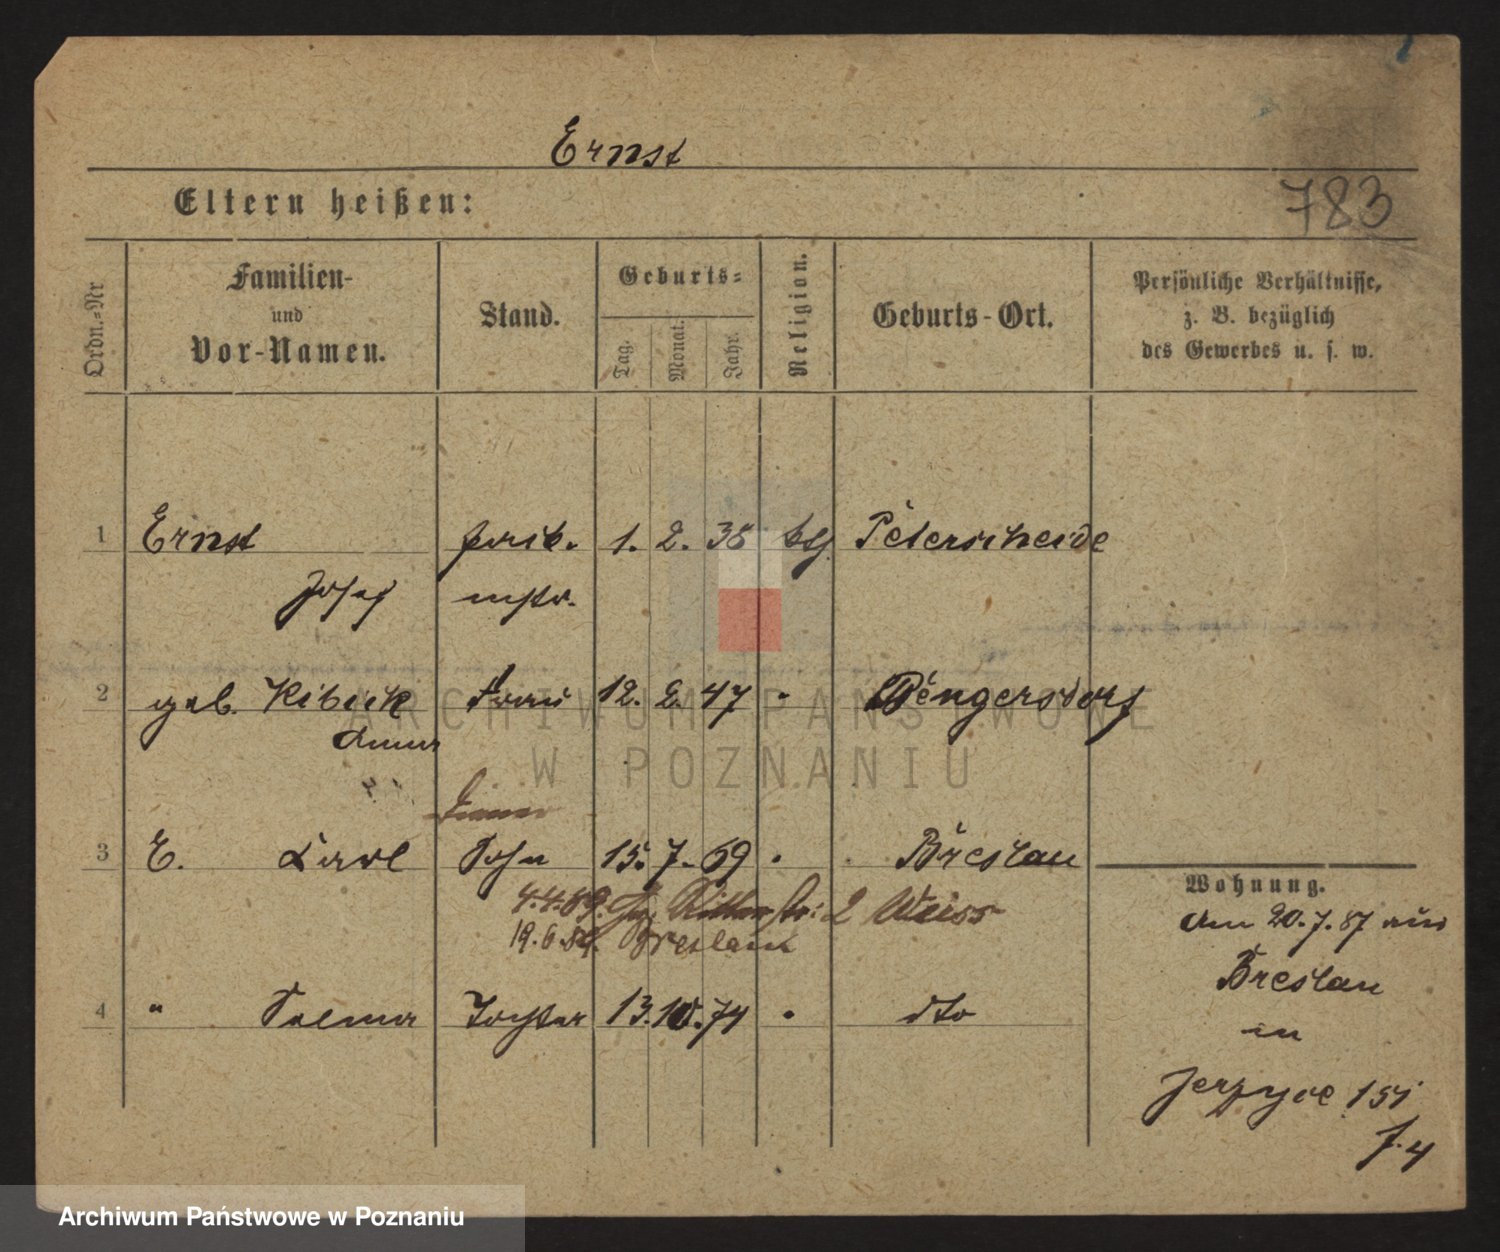 Ernst
Eltern heißen:
783
Ordn.-Nr
Familien-
und
Vor-Namen.
Stand.
Geburts-
Tag.
Monat.
Jahr.
Religion.
Geburts-Ort.
Persönliche Verhältnisse,
z. B. bezüglich
des Gewerbes u. s. w.
1 Ernst 1. 2. 38 Peterscheide
Josef
2 geb. Frau 12. 2. 47 " Bengersdorf
Anna
3 E. Karl Sohn 15. 7. 69 " Breslau
4.4.89. 2 Weiss
19.6.89. Breslau
4 " Selma Tochter 13.10.74 " dto
Wohnung.
Am 20.7.87 aus
Breslau
in
Jerzyce 151
ARCHIWUM PAŃSTWOWE
W POZNANIU
Archiwum Państwowe w Poznaniu